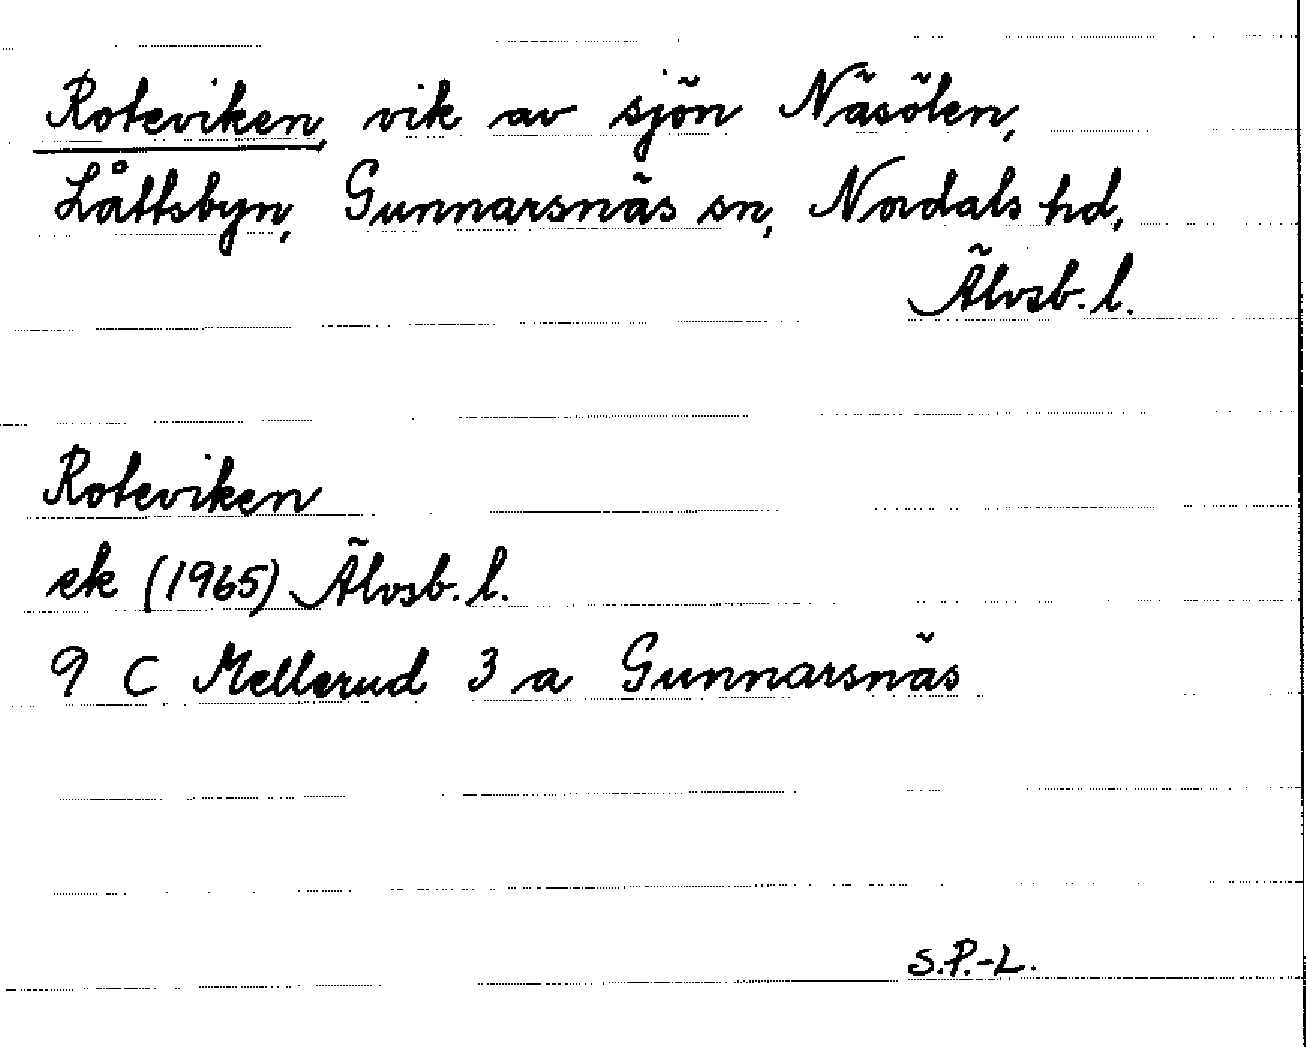 Roteviken, vik av sjön Näsölen,
Låttsbyn, Gunnarsnäs sn, Nordals hd,
Älvsb. l.
Roteviken
ek (1965) Älvsb. l.
9 C Mellerud 3 a Gunnarsnäs
S.P.-L.